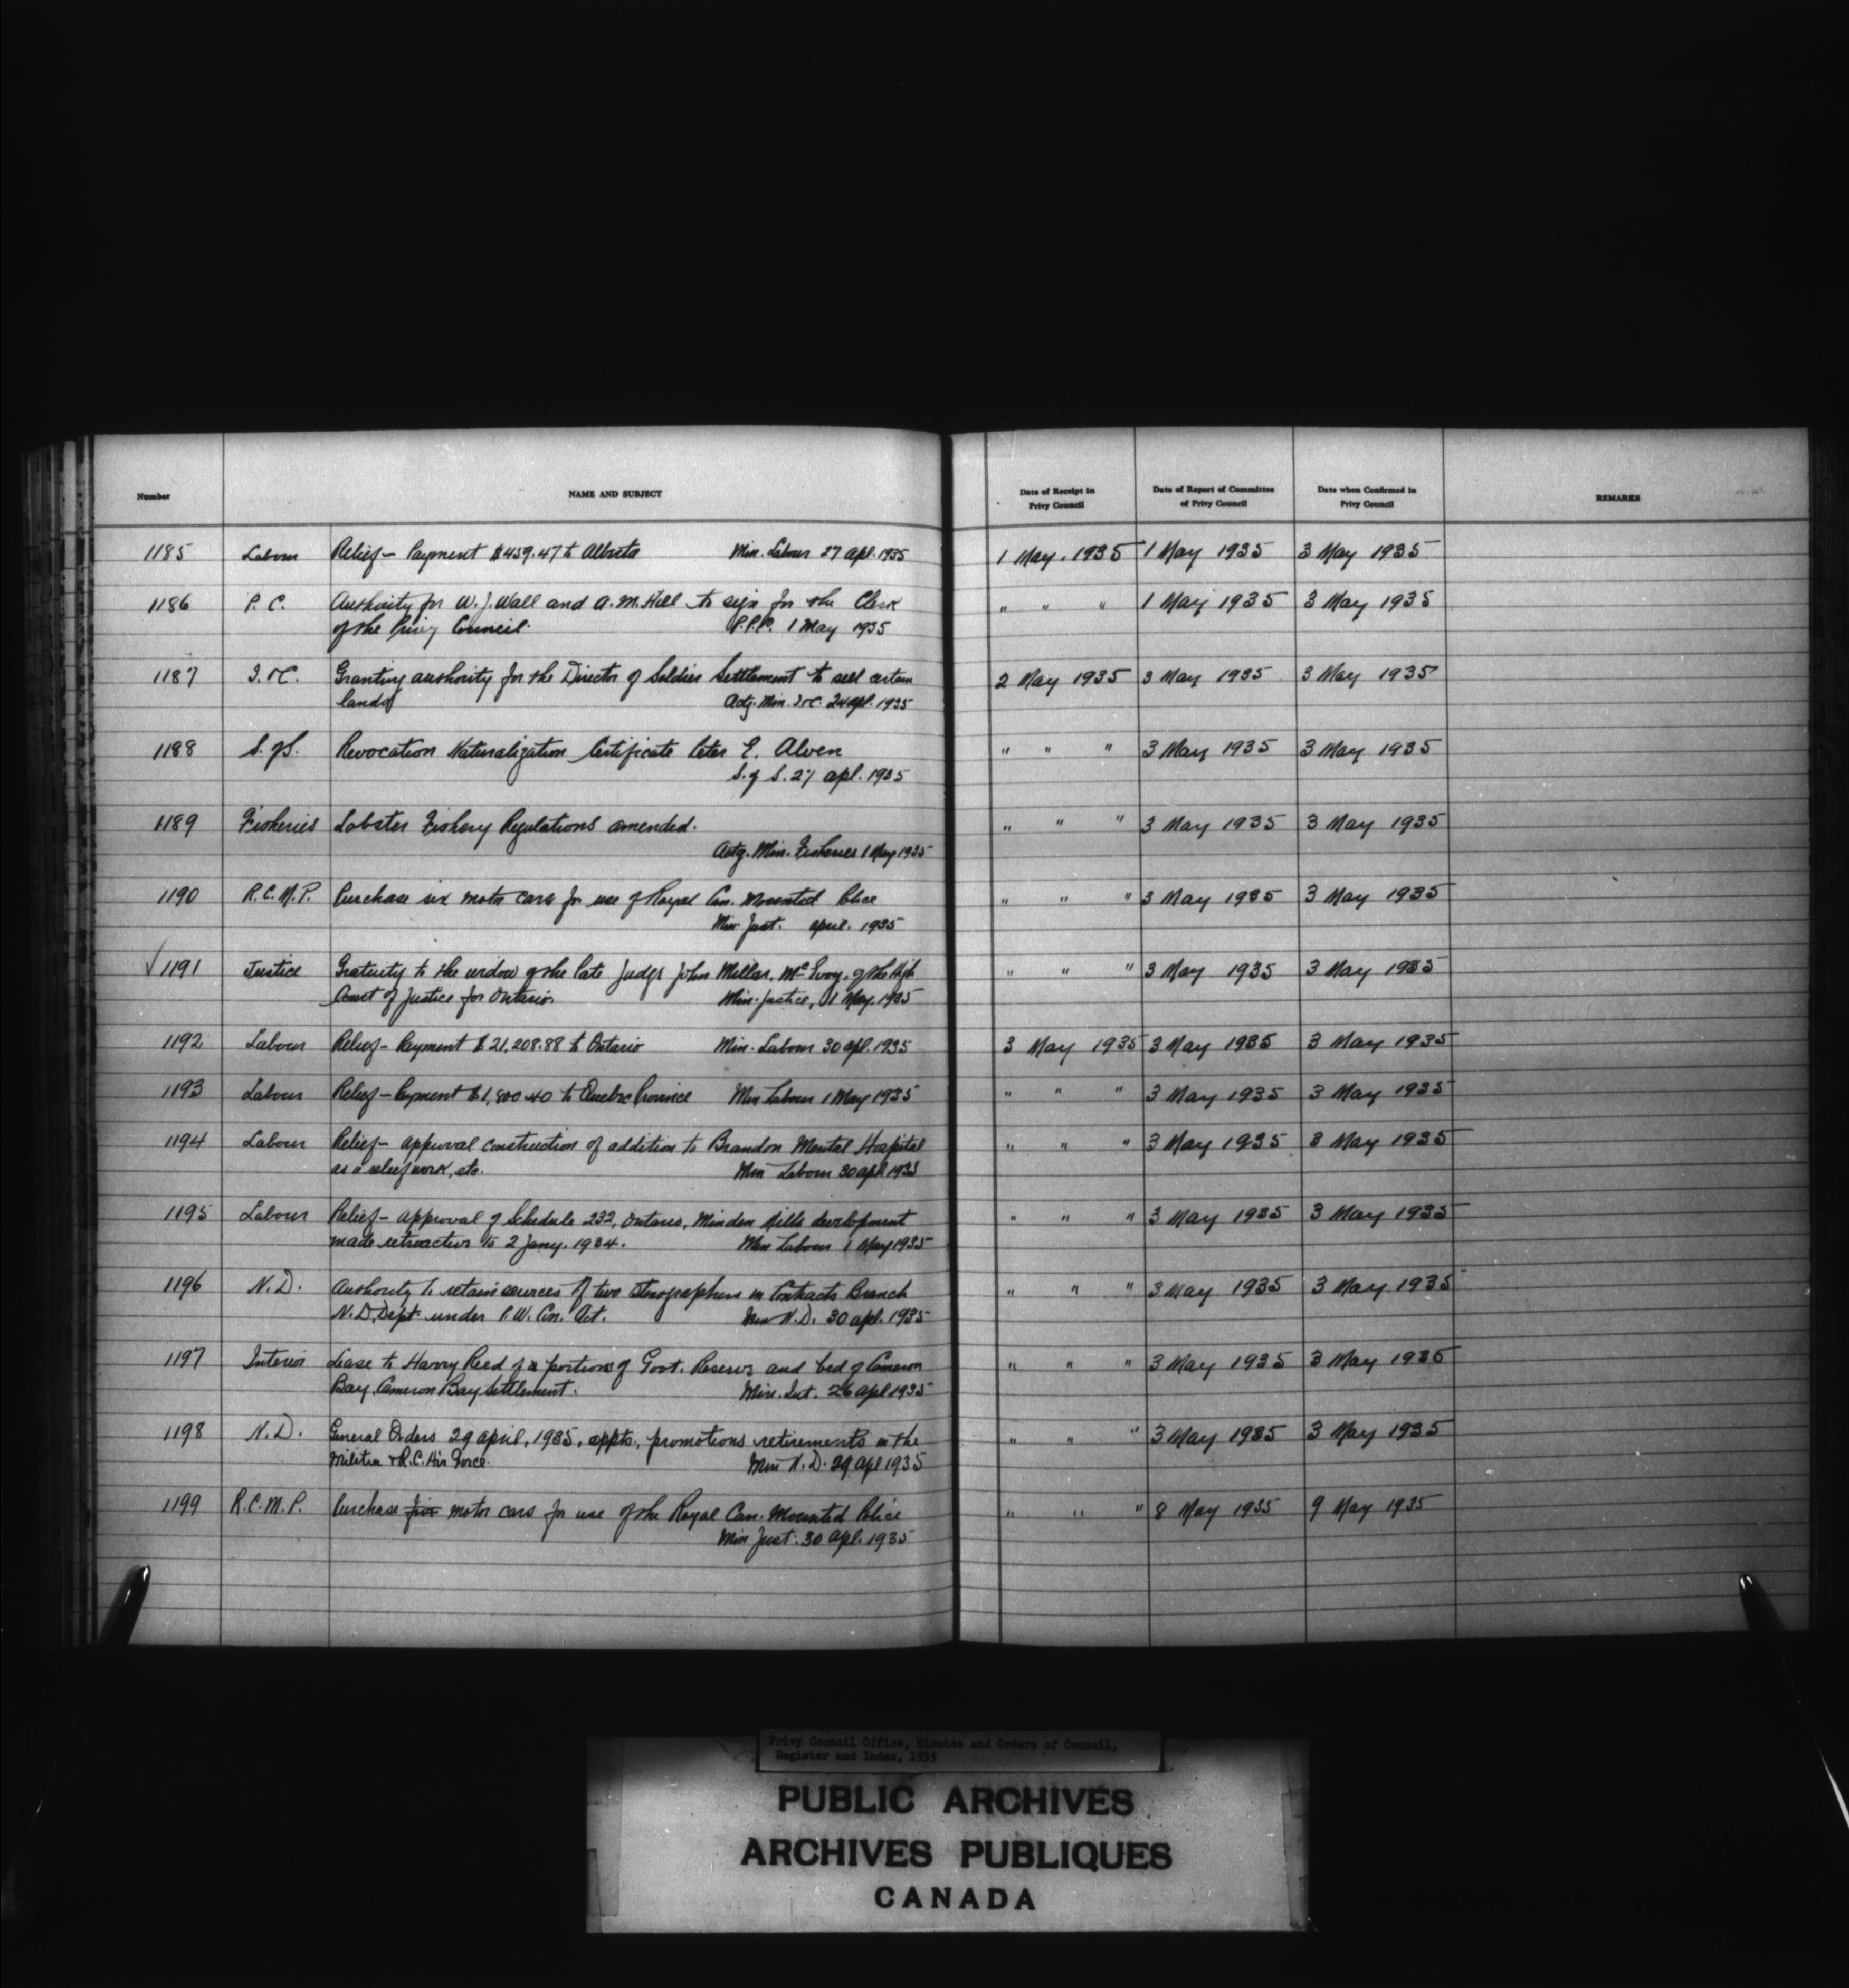 Number NAME AND SUBJECT Date of Receipt in Privy Council Date of Report of Committee of Privy Council Date when Confirmed in Privy Council REMARKS
1185 Labour Relief - Payment $459.47 to Alberta Min. Labour 27 Apl. 1935 1 May. 1935 1 May 1935 3 May 1935
1186 P. C. Authority for W. J. Wall and A. M. Hill to sign for the Clerk " " " 1 May 1935 3 May 1935
of the Privy Council. P.P.C. 1 May 1935
1187 I. & C. Granting authority for the Director of Soldier Settlement to sell certain 2 May 1935 3 May 1935 3 May 1935
lands Actg. Min. I & C. 24 Apl. 1935
1188 S. of S. Revocation Naturalization Certificate Peter E. Alven " " " 3 May 1935 3 May 1935
S. of S. 27 Apl. 1935
1189 Fisheries Lobster Fishery Regulations amended. " " " 3 May 1935 3 May 1935
Actg. Min. Fisheries 1 May 1935
1190 R.C.M.P. Purchase six motor cars for use of Royal Can. Mounted Police " " " 3 May 1935 3 May 1935
Min. Just. April. 1935
√ 1191 Justice Gratuity to the widow of the late Judge John Millar, McEvoy, of the High " " " 3 May 1935 3 May 1935
Court of Justice for Ontario. Min. Justice, 1 May. 1935
1192 Labour Relief - Payment $21,208.88 to Ontario Min. Labour 30 Apl. 1935 3 May 1935 3 May 1935 3 May 1935
1193 Labour Relief - Payment $1,800.40 to Quebec Province Min Labour 1 May 1935 " " " 3 May 1935 3 May 1935
1194 Labour Relief - approval construction of addition to Brandon Mental Hospital " " " 3 May 1935 3 May 1935
as a relief work, etc. Min Labour 30 Apl 1935
1195 Labour Relief - approval of Schedule 232, Ontario, Minden Hills development " " " 3 May 1935 3 May 1935
made retroactive to 2 Jany. 1934. Min Labour 1 May 1935
1196 N. D. Authority to retain services of two stenographers in Contracts Branch " " " 3 May 1935 3 May 1935
N. D. Dept. under P. W. Con. Act. Min N. D. 30 Apl. 1935
1197 Interior Lease to Harry Reed of a portion of Govt. Reserve and bed of Cameron " " " 3 May 1935 3 May 1935
Bay, Cameron Bay Settlement. Min. Int. 26 Apl 1935
1198 N. D. General Orders 29 April, 1935, appts, promotions retirements in the " " " 3 May 1935 3 May 1935
Militia & R. C. Air Force. Min N. D. 29 Apl 1935
1199 R. C. M. P. Purchase five motor cars for use of the Royal Can. Mounted Police " " " 8 May 1935 9 May 1935
Min Just. 30 Apl. 1935
Privy Council Office, Minutes and Orders of Council,
Register and Index, 1935
PUBLIC ARCHIVES
ARCHIVES PUBLIQUES
CANADA